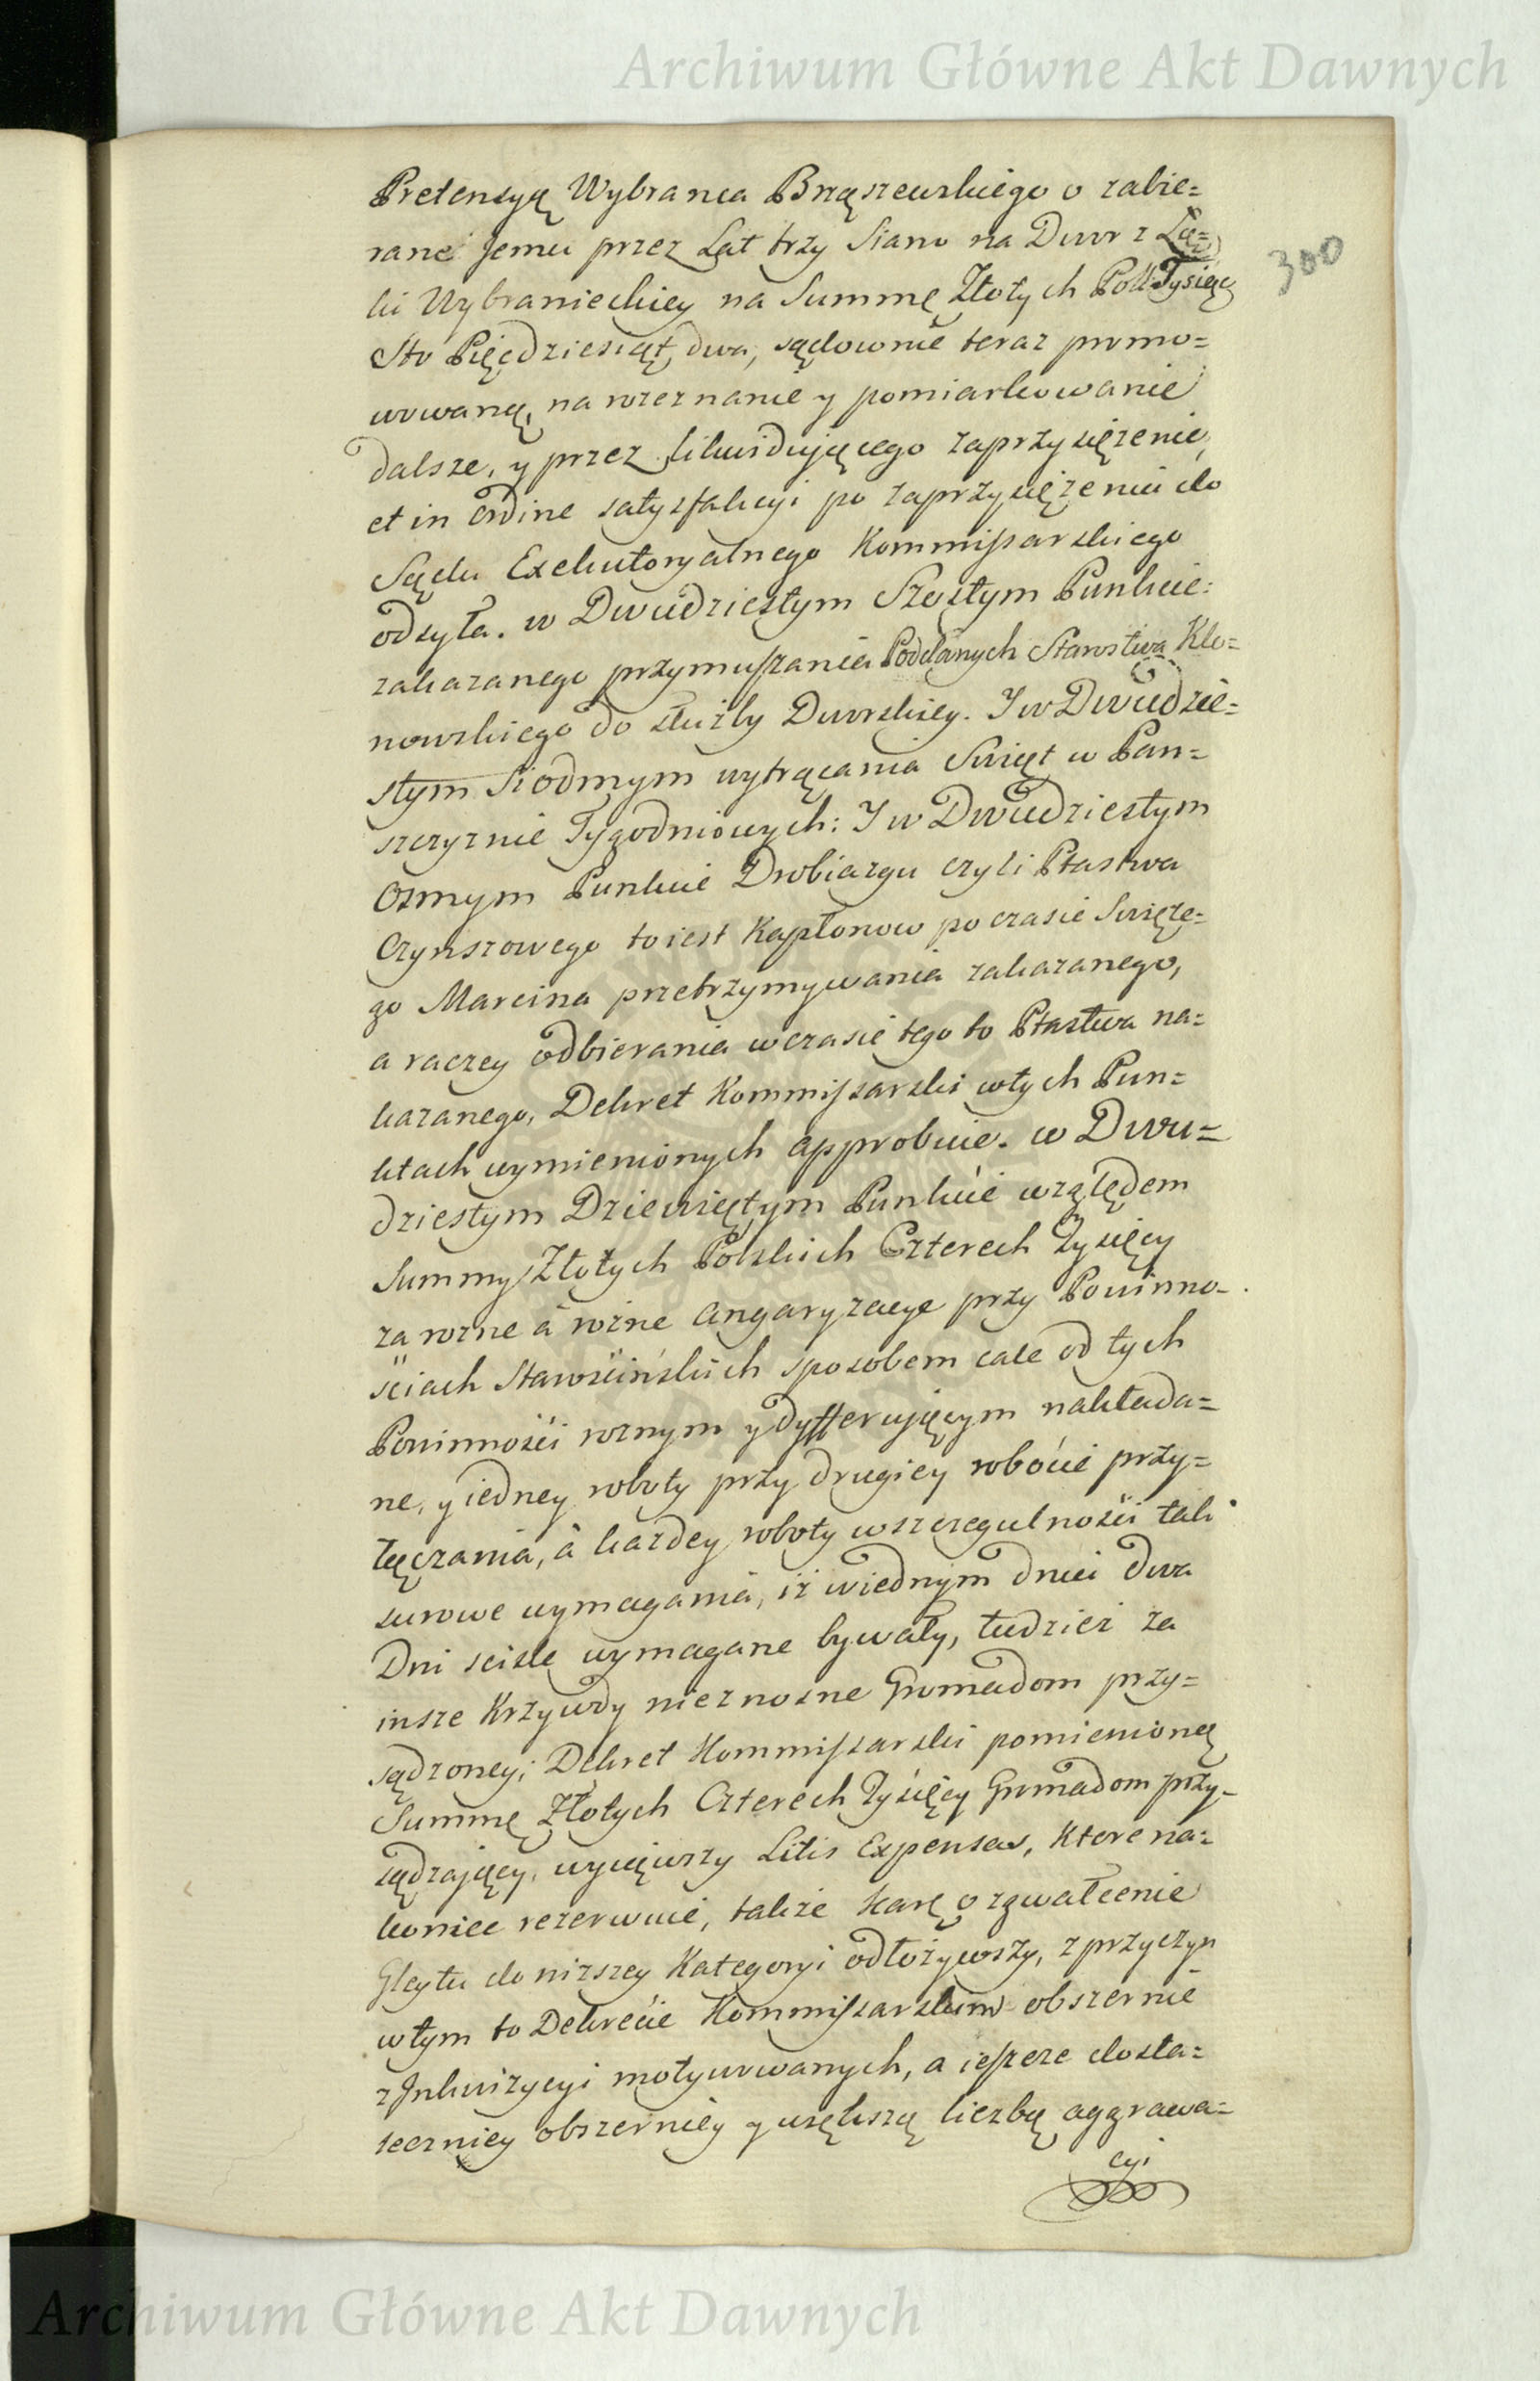 Archiwum Główne Akt Dawnych
Pretensyą Wybranca Brząszewskiego o zabie=
rane Jemu przez Lat trzy Siano na Dwor z Łą=
ki Wybranieckiey na Summę Złotych Pol: Tysiąc
Sto Pięcdziesiąt dwa, sądownie teraz promo=
wowaną, na rozeznanie y pomiarkowanie
dalsze, y przez likwidującego zaprzysiężenie,
et in ordine satyzfakcyi po zaprzysiężeniu do
Sądu Exekutoryalnego Kommissarskiego
odsyła. w Dwudziestym Szostym Punkcie:
zakazanego przymuszania Poddanych Starostwa Klo=
nowskiego do służby Dworskiey. I w Dwudzie=
stym Siodmym wytrącania Swiąt w Pan=
szczyznie Tygodniowych: I w Dwudziestym
Osmym Punkcie Drobiazgu czyli Ptastwa
Czynszowego to iest Kapłonow po czasie Swięte=
go Marcina przetrzymywania zakazanego,
a raczey odbierania w czasie tego to Ptastwa na=
kazanego, Dekret Kommissarski w tych Pun=
ktach wymienionych approbuie. w Dwu=
dziestym Dziewiątym Punkcie względem
Summy Złotych Polskich Czterech Tysięcy
za rozne á rożne Angaryzacye przy Powinno-
ściach Starościńskich sposobem cale od tych
Powinności roznym y dyfferuiącym nakłada=
ne, y iedney roboty przy drugiey robocie przy=
łączania, á kazdey roboty w szczegulności tak
surowe wymagania, iż w iednym dniu dwa
Dni scisle wymagane bywały, tudzież za
insze Krzywdy nieznosne Gromadom przy=
sądzoney; Dekret Kommissarski pomienioną
Summę Złotych Czterech Tysięcy Gromadom przy-
sądzaiący, wyiąwszy Litis Expensas, ktore na=
koniec rezerwuie, także karę o zgwałcenie
Gleytu do nizszey Kategoryi odłożywszy, z przyczyn
w tym to Dekrecie Kommissarskim obszernie
z Inkwizycyi motywowanych, a ieszcze dosta=
teczniey obszerniey y większą liczbą aggrawa=
cyi
300
Archiwum Główne Akt Dawnych